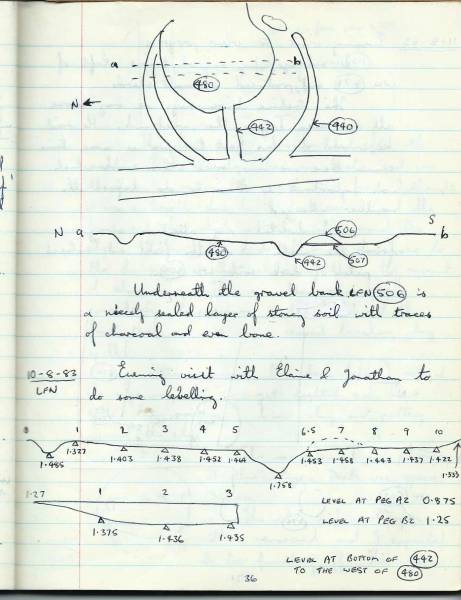 a b
480
N
442
440
S
N a b
506
480
442 507
Underneath the gravel bank LFN 506 is
a nicely sealed layer of stoney soil with traces
of charcoal and even bone.
10-8-83 Evening visit with Elaine & Jonathan to
LFN do some labelling.
0 1 2 3 4 5 6.5 7 8 9 10
1.485 1.327 1.403 1.438 1.452 1.464 1.758 1.453 1.458 1.443 1.437 1.422 1.333
1.27 1 2 3
1.375 1.436 1.435
LEVEL AT PEG A2 0.875
LEVEL AT PEG B2 1.25
LEVEL AT BOTTOM OF 442
TO THE WEST OF 480
36